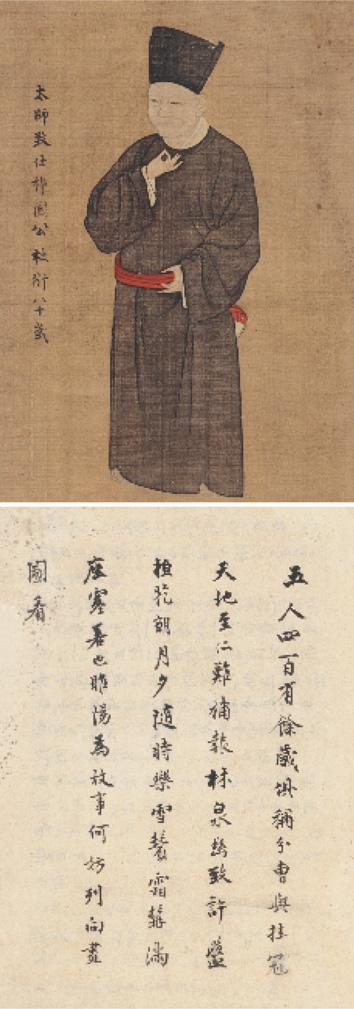 太師致仕祁國公杜衍八十歲
五人四百有餘歲俱稱分曹與挂冠
天地至仁難補報林泉幽致許盤
桓花朝月夕隨時樂雪鬢霜髯滿
座寒若也睢陽為故事何妨列向畫
圖看